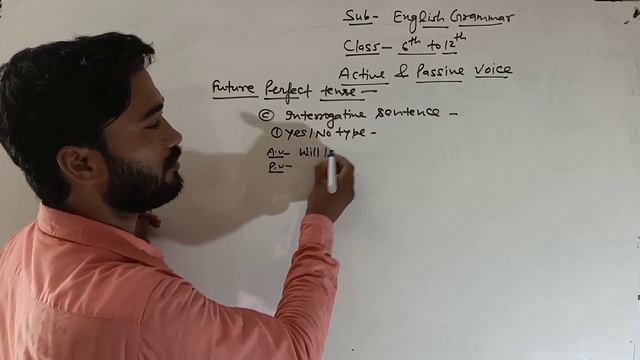 Sub- English Grammar
Class- 6th to 12th
Active & Passive Voice
Future Perfect tense -
Ⓒ Interrogative sentence -
① Yes/No type -
A.V- Will
P.V-